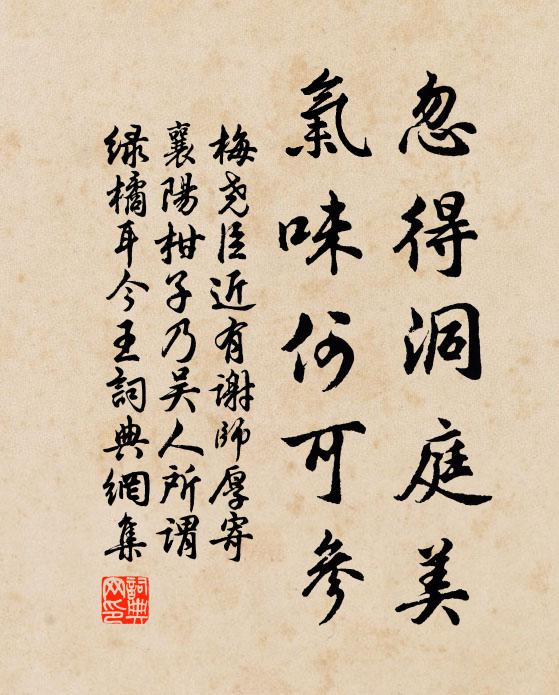 忽得洞庭美
氣味何可參
梅尧臣近有謝師厚寄
襄陽柑子乃吴人所谓
绿橘耳今王詞典網集
詞典网印